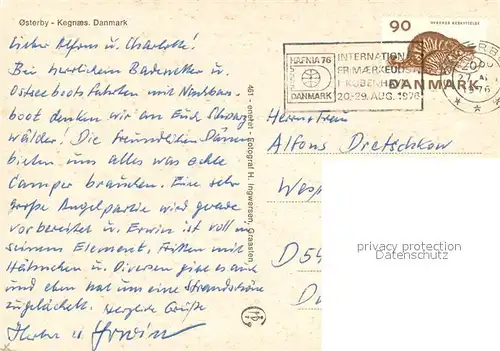 Østerby - Kegnæs. Danmark
Lieber Alfons u. Charlotte!
Bei herrlichem Badewetter u.
Ostseebootsfahrten mit Nachbars-
boot denken wir an Euch
wälder! Die freundlichen Dänen
bieten uns alles was echte
Camper brauchen. Eine sehr
große Angelpartie wird gerade
vorbereitet u. Erwin ist voll in
seinem Element.
Hähnchen u. gibt es auch
und eben hat uns eine
zugelächelt. Herzliche Grüße
u. Erwin
461 - eneret - Fotograf H. Ingwersen, Graasten
HAFNIA 76
DANMARK
INTERNATIONAL
FRIMÆRKEUDST
I KØBENHAVN
20.-29. AUG. 1976
90
DANMARK
Herrn Frau
Alfons Dretschkow
D 54
privacy protection
Datenschutz